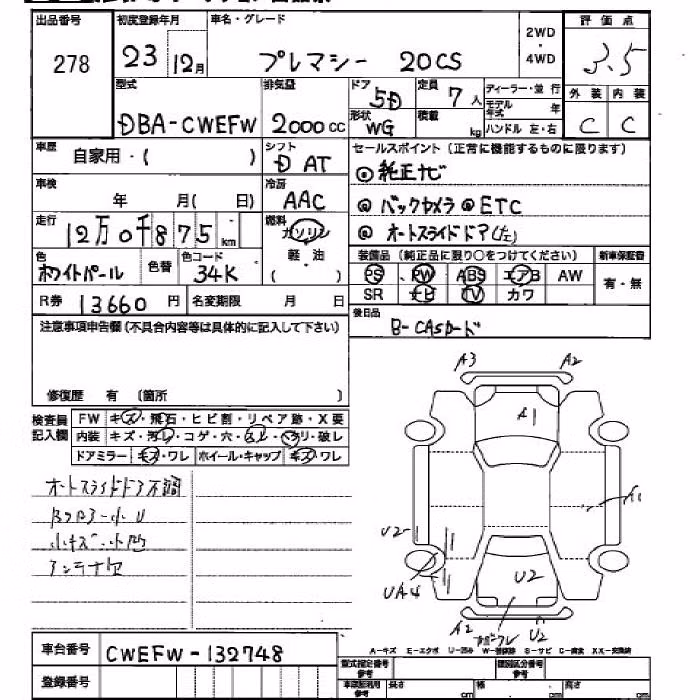 出品番号
278
初度登録年月
23 12月
車名・グレード
プレマシー 20CS
2WD
・
4WD
評価点
3.5
外装 内装
C C
型式
DBA-CWEFW
排気量
2000cc
ドア
5D
定員
7人
ディーラー・並行
モデル年式 年
形状
WG
積載
kg
ハンドル 左・右
車歴
自家用・( )
シフト
D AT
セールスポイント (正常に機能するものに限ります)
◎純正ナビ
◎バックカメラ ◎ETC
◎オートスライドドア(左)
車検
年 月( 日)
冷房
AAC
走行
12万0千875km
燃料
ガソリン
軽・油
( )
色
ホワイトパール
色替
色コード
34K
装備品 (純正品に限り○をつけてください)
新車保証書
PS PW ABS エアB AW
有・無
SR ナビ TV カワ
R券 13660円
名変期限 月 日
後日品
B-CASカード
注意事項申告欄(不具合内容等は具体的に記入して下さい)
修復歴 有 (箇所 )
検査員
記入欄
FW キズ・飛石・ヒビ割・リペア跡・X要
内装 キズ・汚レ・コゲ・穴・スレ・ヘリ・破レ
ドアミラー キズ・ワレ ホイール・キャップ キズ・ワレ
オートスライドドア不調
小キズ・小凹
アンテナ欠
A3 A2
A1
A1
U2
UA4
U2
A2
U2
A-キズ E-エクボ U-凹み W-補修跡 S-サビ C-腐食 XX-交換済
車台番号
CWEFW-132748
登録番号
型式指定番号
参考
類別区分番号
参考
長さ cm
幅 cm
高さ cm